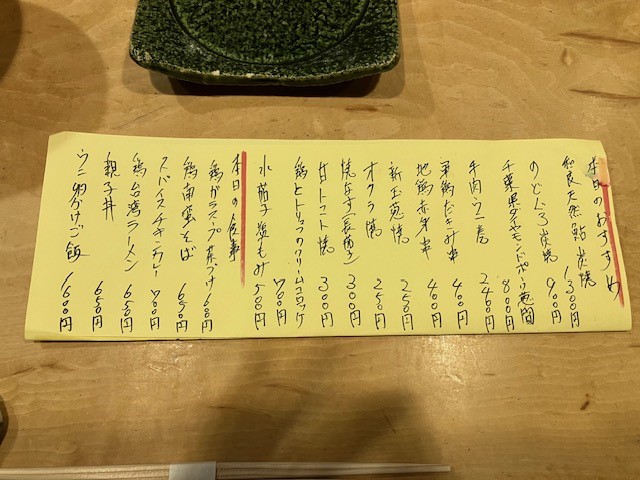 本日のおすすめ
和良天然鮎炭焼 1300円
のどぐろ炭焼 900円
千葉県ダイヤモンドポーク 800円
牛肉ウニ巻 2400円
軍鶏たたき串 400円
地鶏赤身串 400円
新玉葱焼 250円
オクラ焼 250円
焼なす(長茄子) 300円
甘トマト焼 300円
鶏とトリュフのクリームコロッケ 700円
水茄子塩もみ 500円
本日の食事
鶏ガラスープ茶づけ 600円
鶏南蛮そば 650円
スパイスチキンカレー 700円
鶏台湾ラーメン 650円
親子丼 650円
ウニ卵かけご飯 1600円